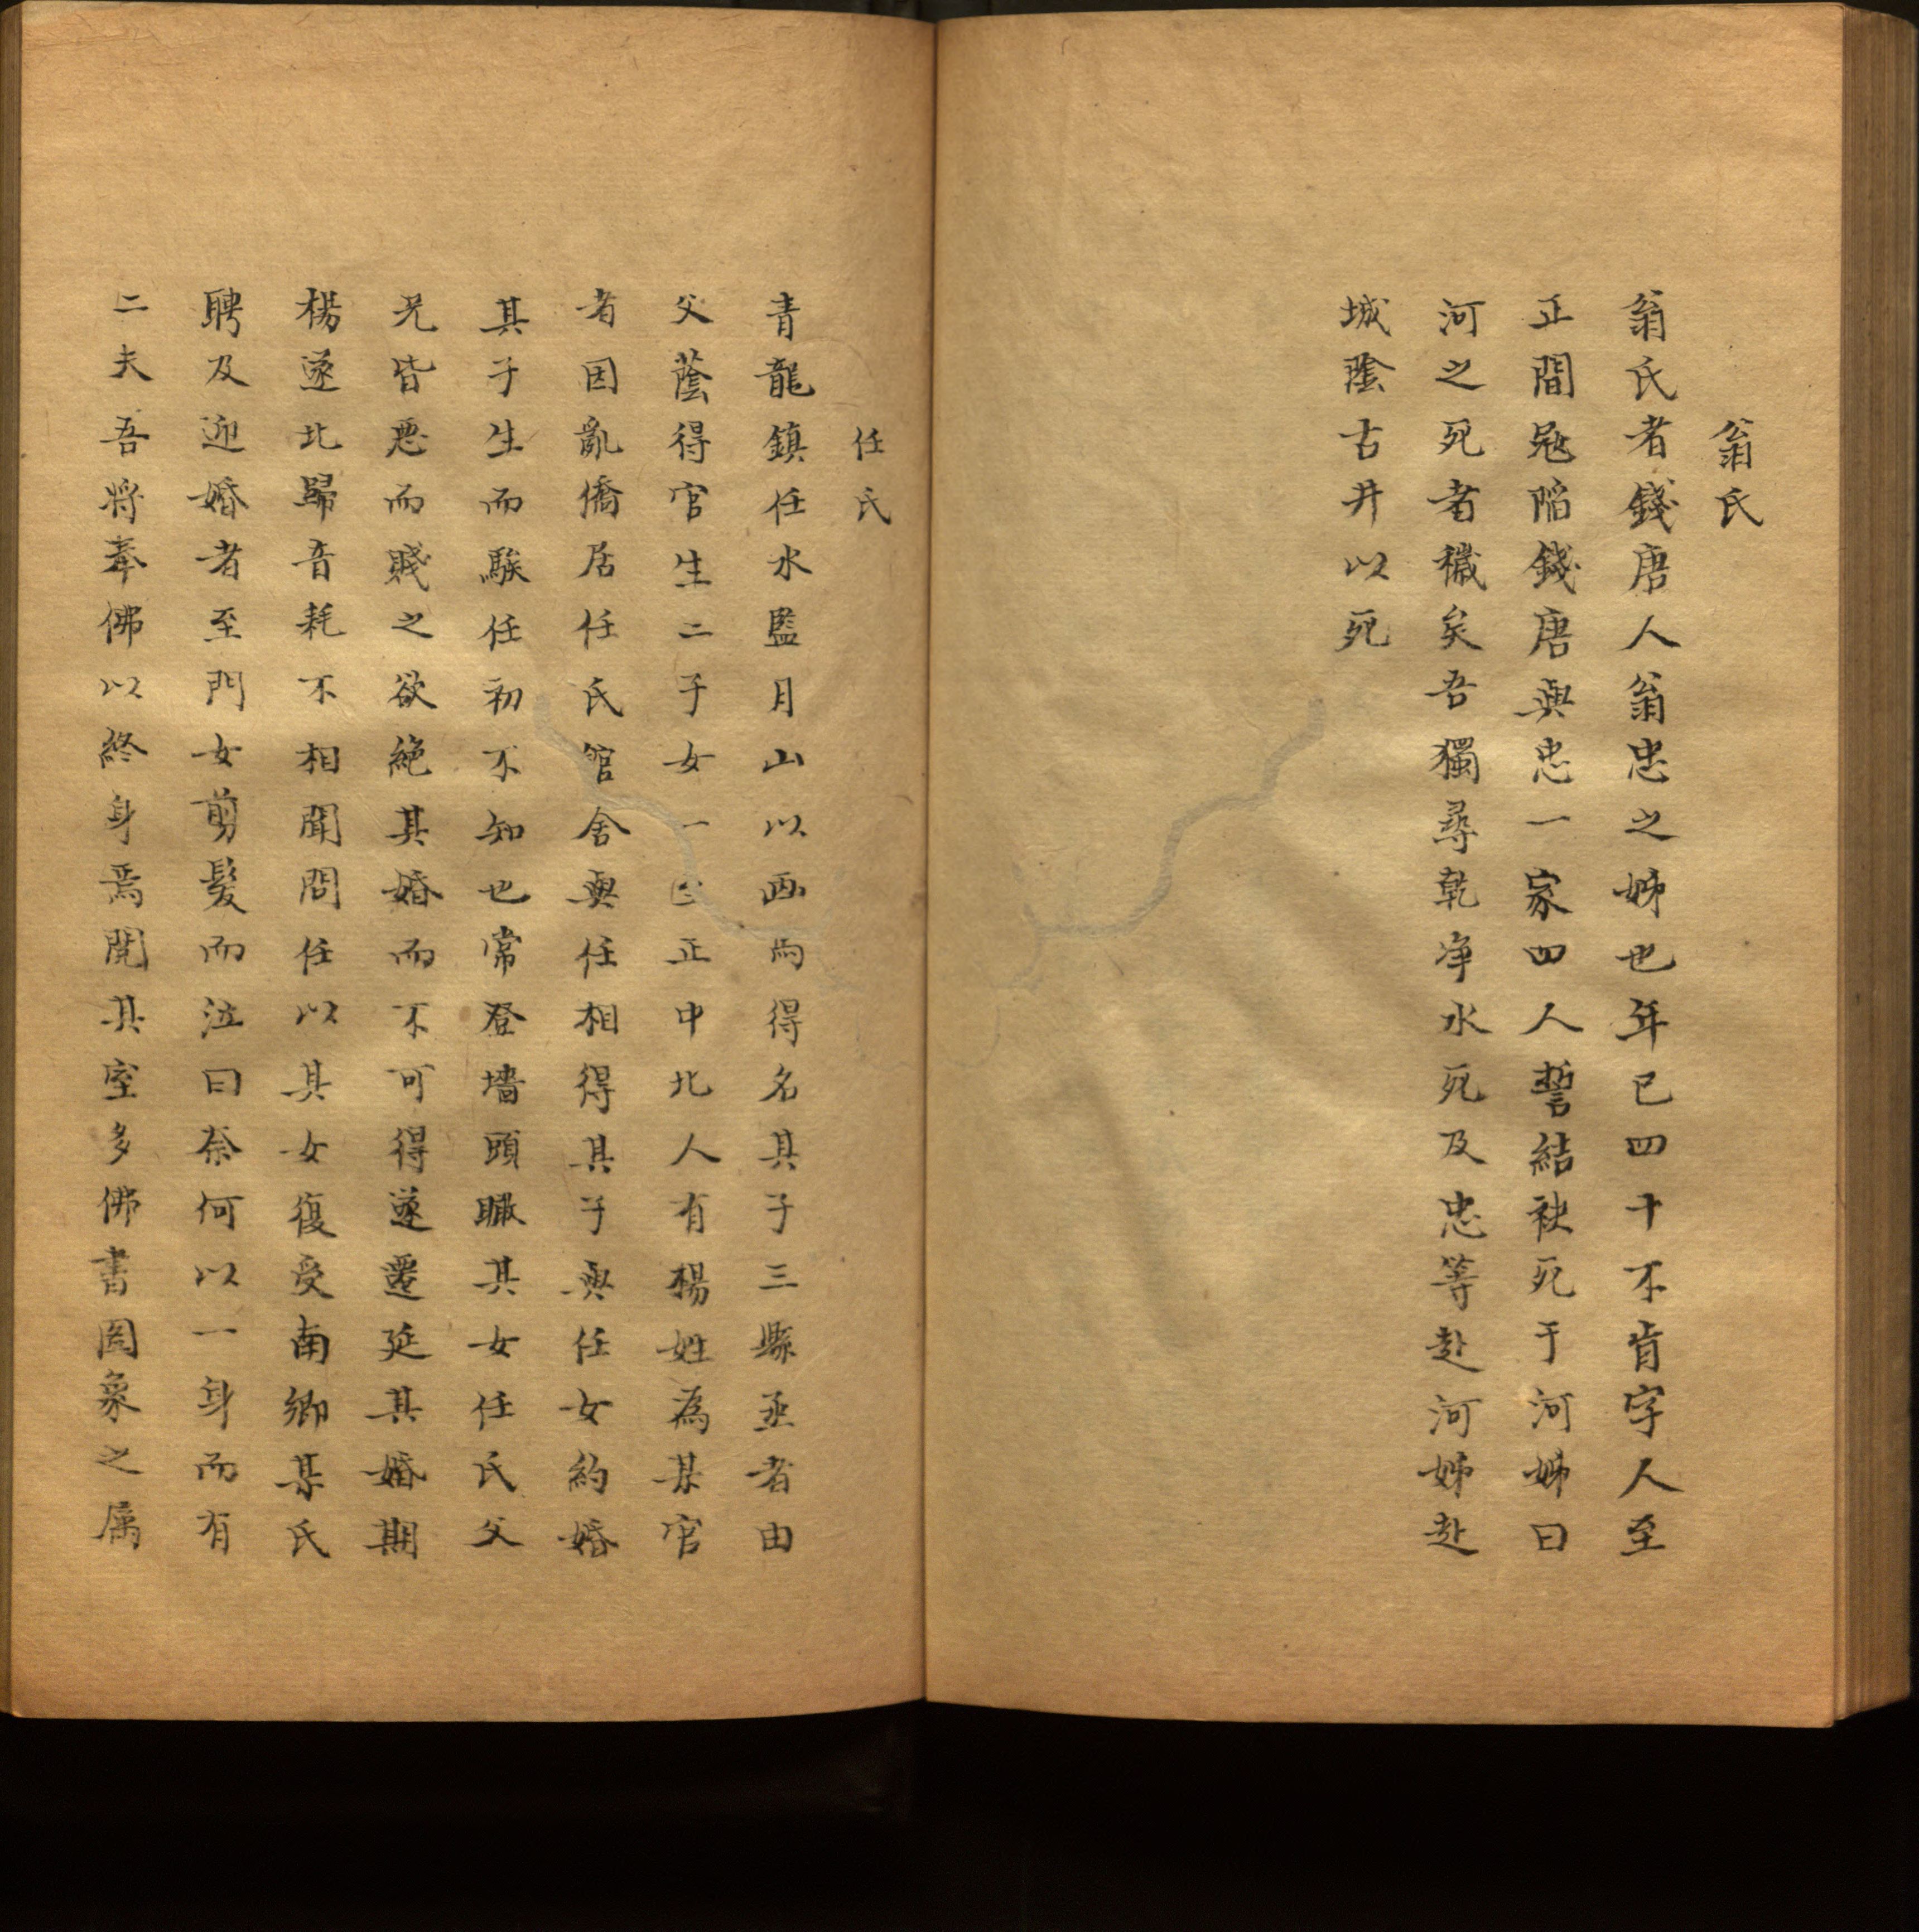 翁氏
翁氏者錢唐人翁忠之姊也年已四十不肯字人至
正間寇陷錢唐與忠一家四人誓結袂死于河姊曰
河之死者穢矣吾獨尋乾净水死及忠等赴河姊赴
城陰古井以死
任氏
青龍鎮任水監月山以画馬得名其子三縣丞者由
父蔭得官生二子女一至正中北人有楊姓為某官
者因亂僑居任氏館舍與任相得其子與任女約婚
其子生而騃任初不知也常登墻頭瞰其女任氏父
兄皆惡而賤之欲絶其婚而不可得遂遷延其婚期
楊遂北歸音耗不相聞問任以其女復受南鄉某氏
聘及迎婚者至門女剪髮而泣曰奈何以一身而有
二夫吾将奉佛以終身焉聞其室多佛書圖象之属